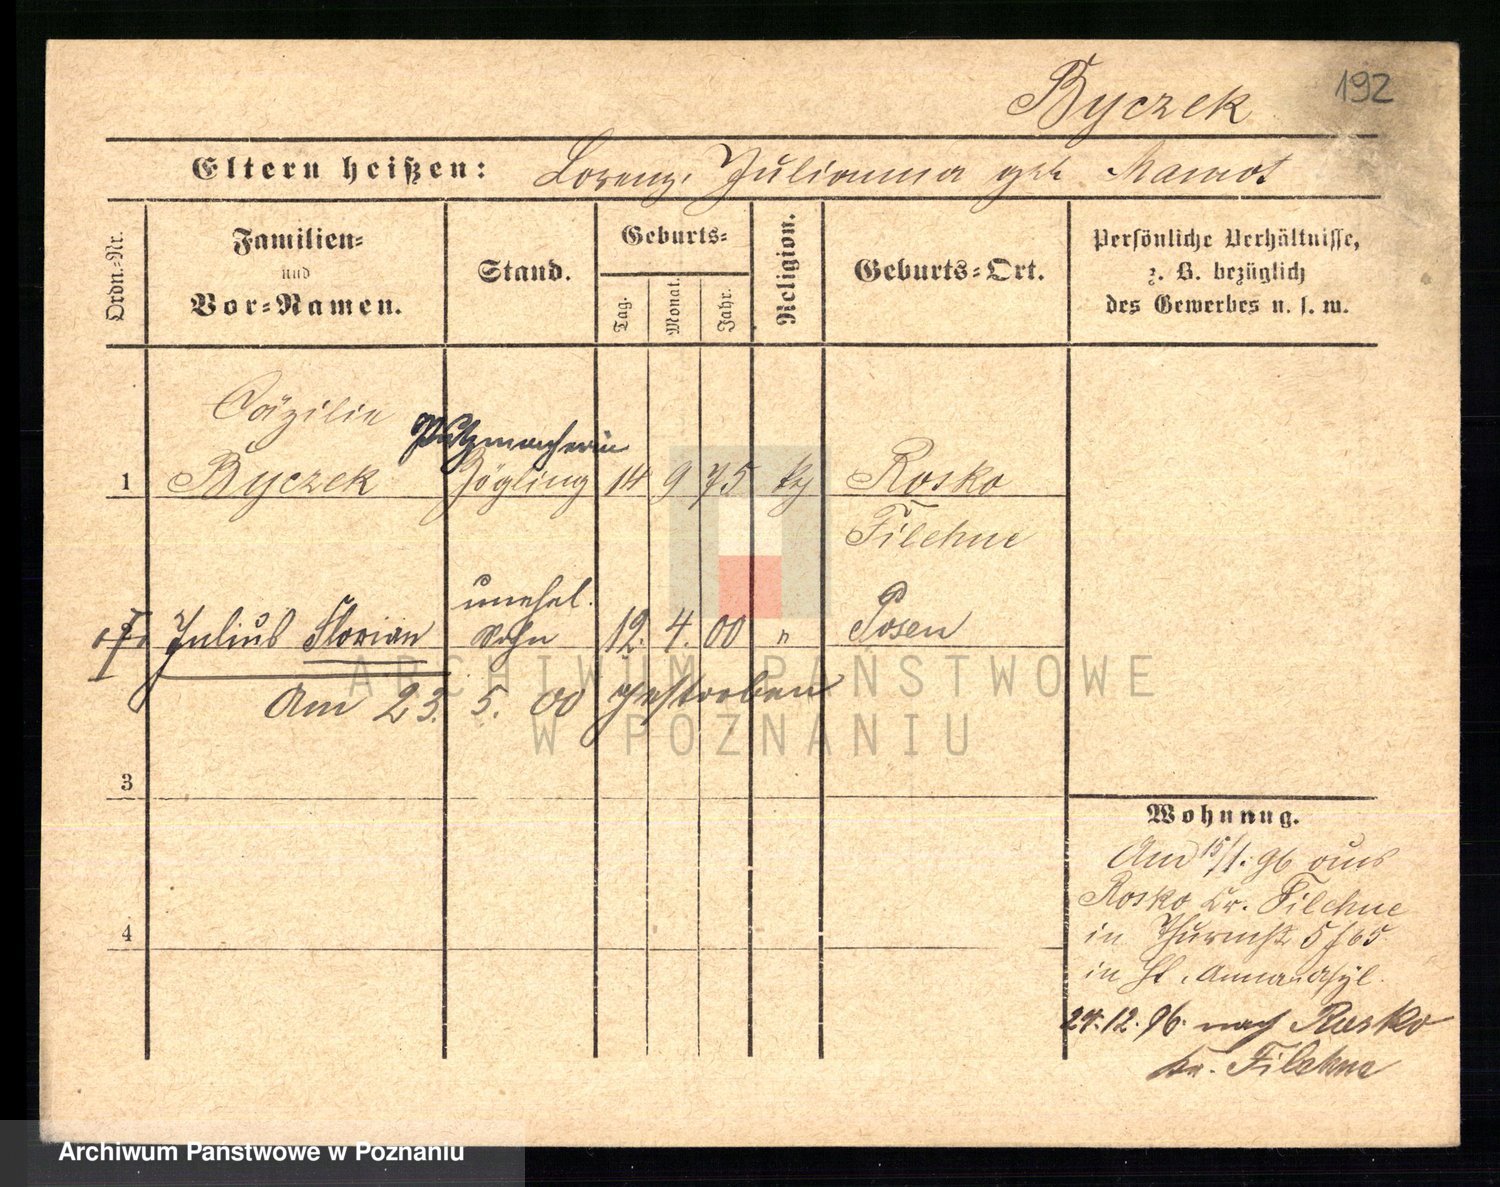 192
Byczek
Eltern heißen: Lorenz, Julianna geb. Mamot
Ordn.-Nr.
Familien-
und
Vor-Namen.
Stand.
Geburts-
Tag.
Monat.
Jahr.
Religion.
Geburts-Ort.
Persönliche Verhältnisse,
z. B. bezüglich
des Gewerbes u. s. w.
Cäzilie
Putzmacherin
1 Byczek Zögling 14 9 75 kt Rosko
Filehne
unehel.
Julius Florian Sohn 12. 4. 00 " Posen
Am 23. 5. 00 gestorben
3
4
Wohnung.
Am 15/1. 96 aus
Rosko Kr. Filehne
in Thurmstr 5/65
in St. Annaasyl.
24.12.96. nach Rosko
Kr. Filehne
ARCHIWUM PAŃSTWOWE
W POZNANIU
Archiwum Państwowe w Poznaniu